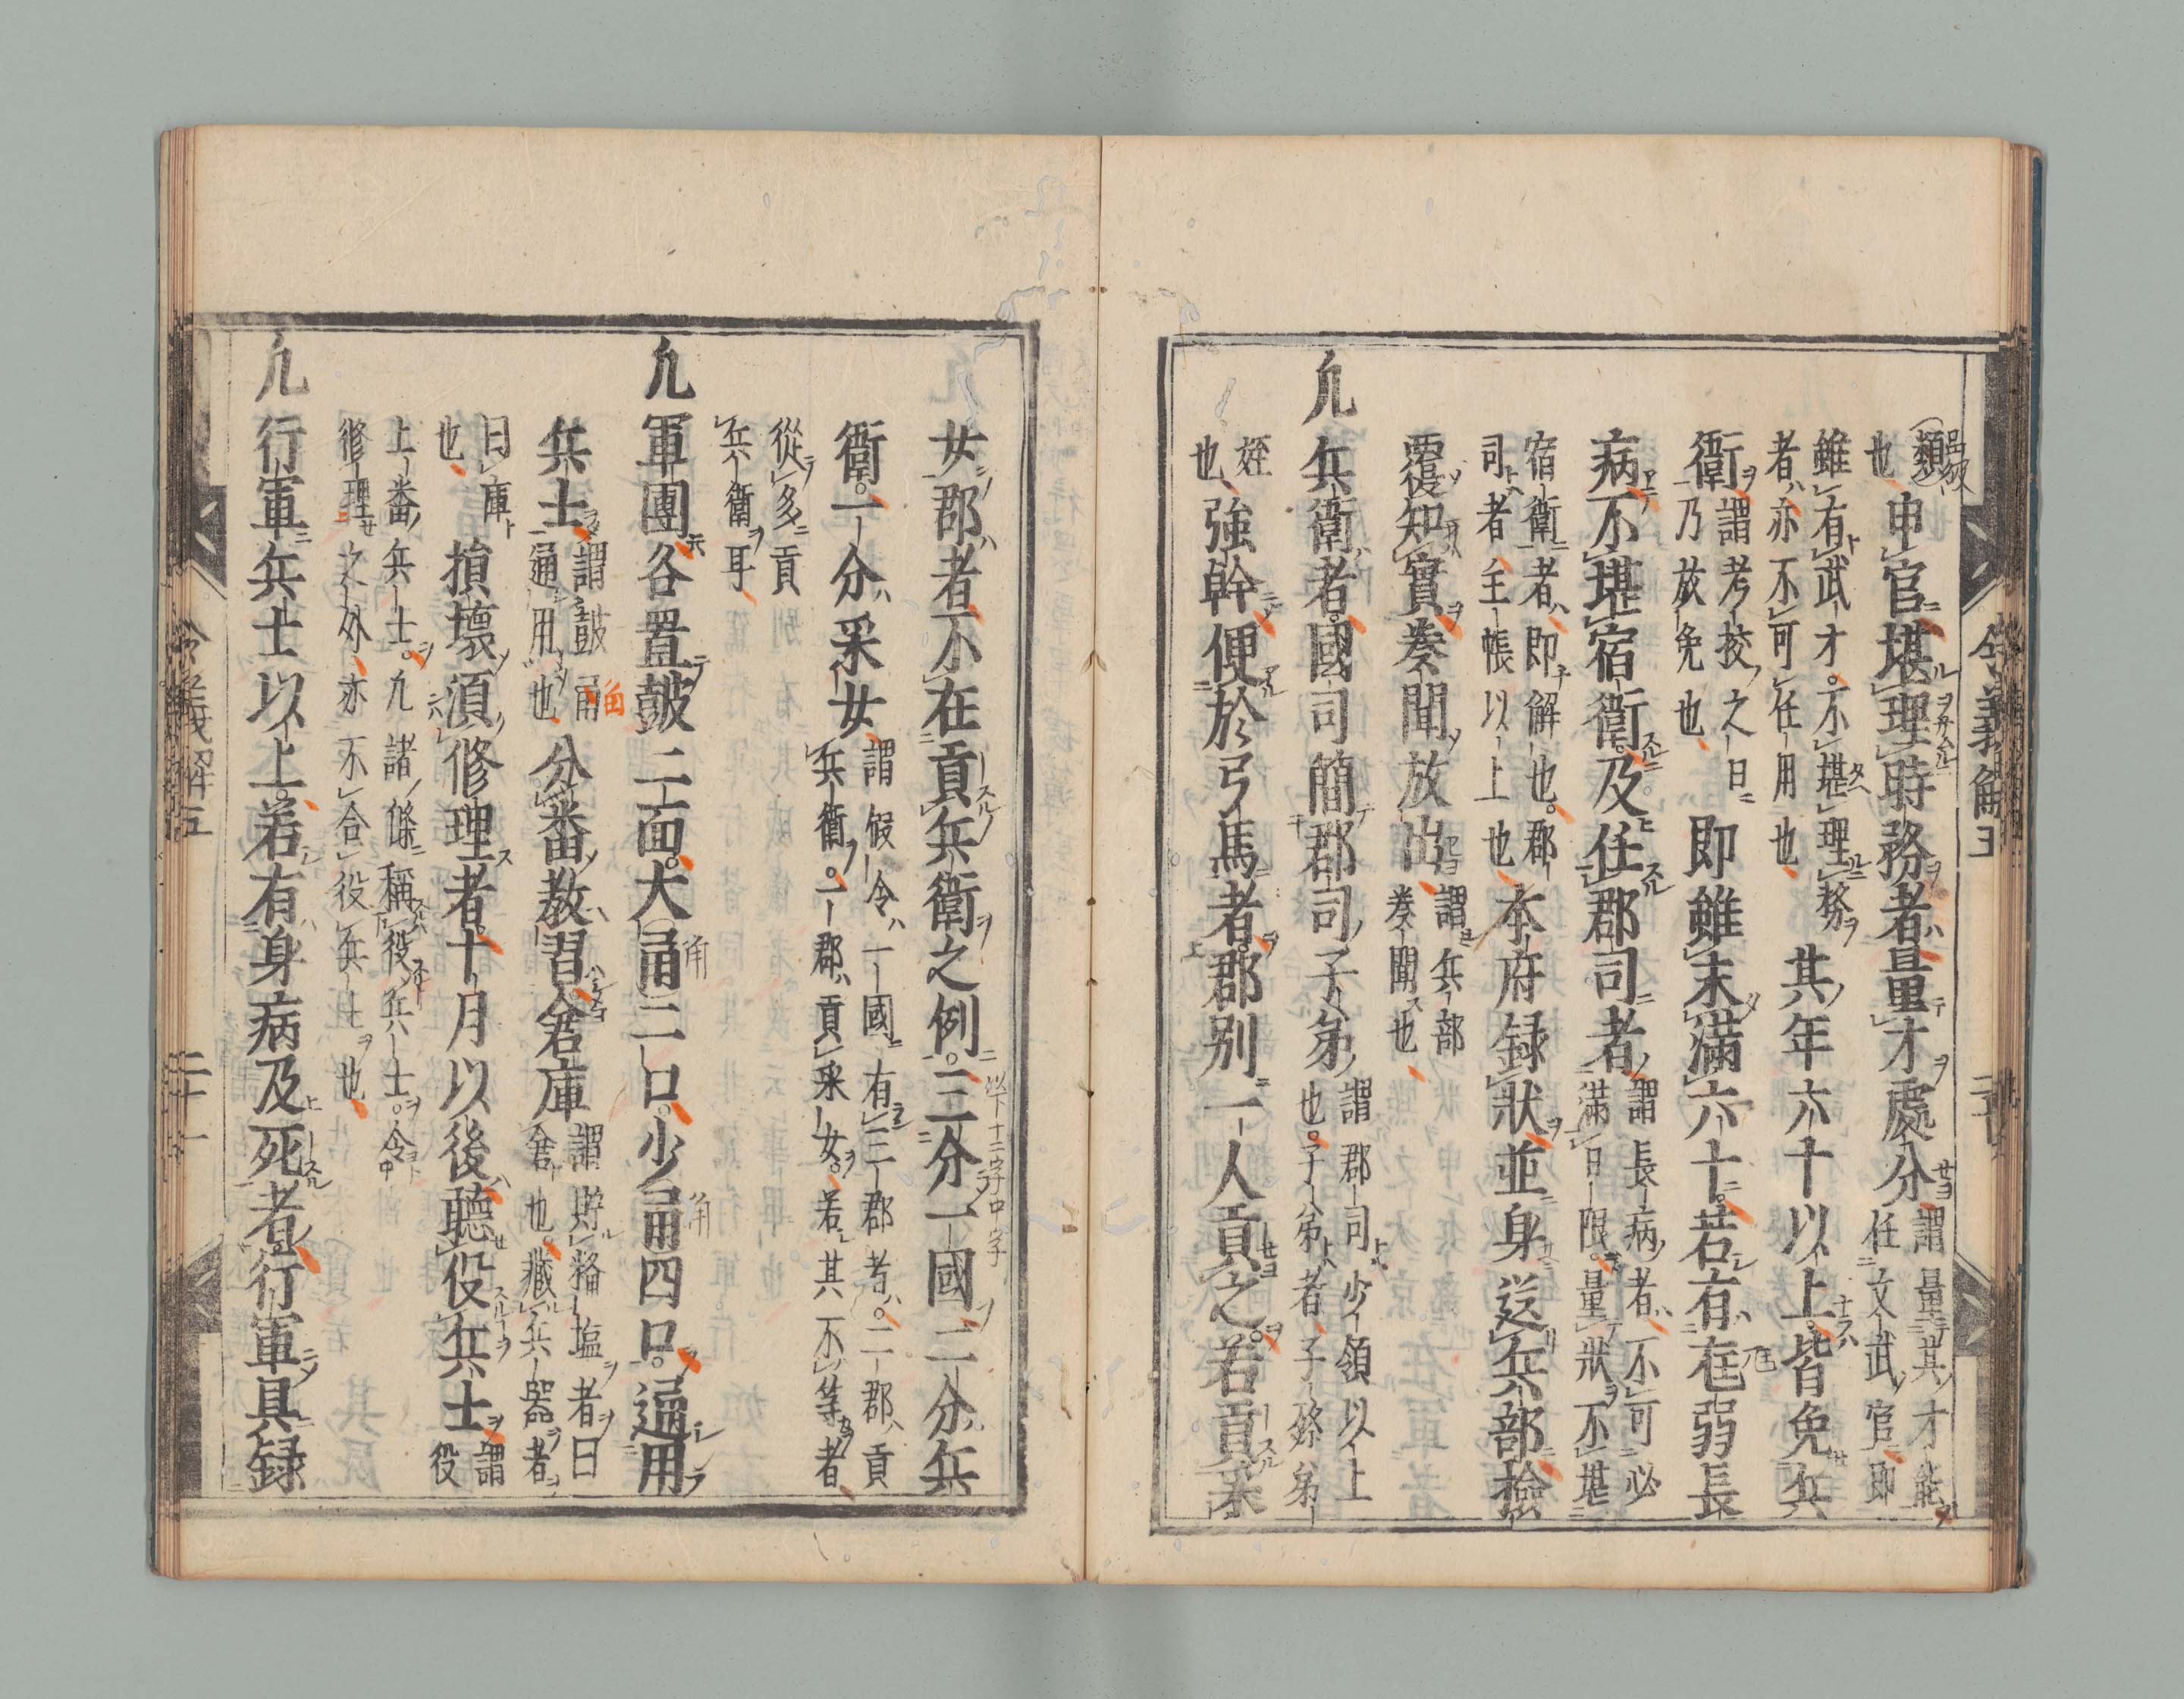 類也申官堪理時務者量才處分謂量其才能任文武官即
雖有武才不堪理務者亦不可任用也其年六十以上皆免兵
衛謂考校之日乃放免也即雖未滿六十若有尫弱長
病不堪宿衛及任郡司者謂長病者不可必滿日限量狀不堪
宿衛者即解也郡司者主帳以上也本府録狀並身送兵部撿
覆知實奏聞放出謂兵部奏聞也
凢兵衛者國司簡郡司子弟謂郡司少領以上也子弟者子孫弟
姪也強幹便於弓馬者郡別一人貢之若貢采
令義解五
女郡者不在貢兵衛之例三分一國二分兵
以下十二字中字
衛一分采女謂假令一國有三郡者二郡貢兵衛一郡貢采女若其不等者
從多貢兵衛耳
凢軍團各置鼓二面大角二口少角四口通用
兵士謂鼓角通用也分番教習倉庫謂貯粮塩者曰舍也藏兵器者
曰庫也損壊須修理者十月以後聴役兵士謂役
上番兵士凢諸條稱役兵士令中修理之外亦不合役兵士也
凢行軍兵士以上若有身病及死者行軍具録
令義解五
二十一